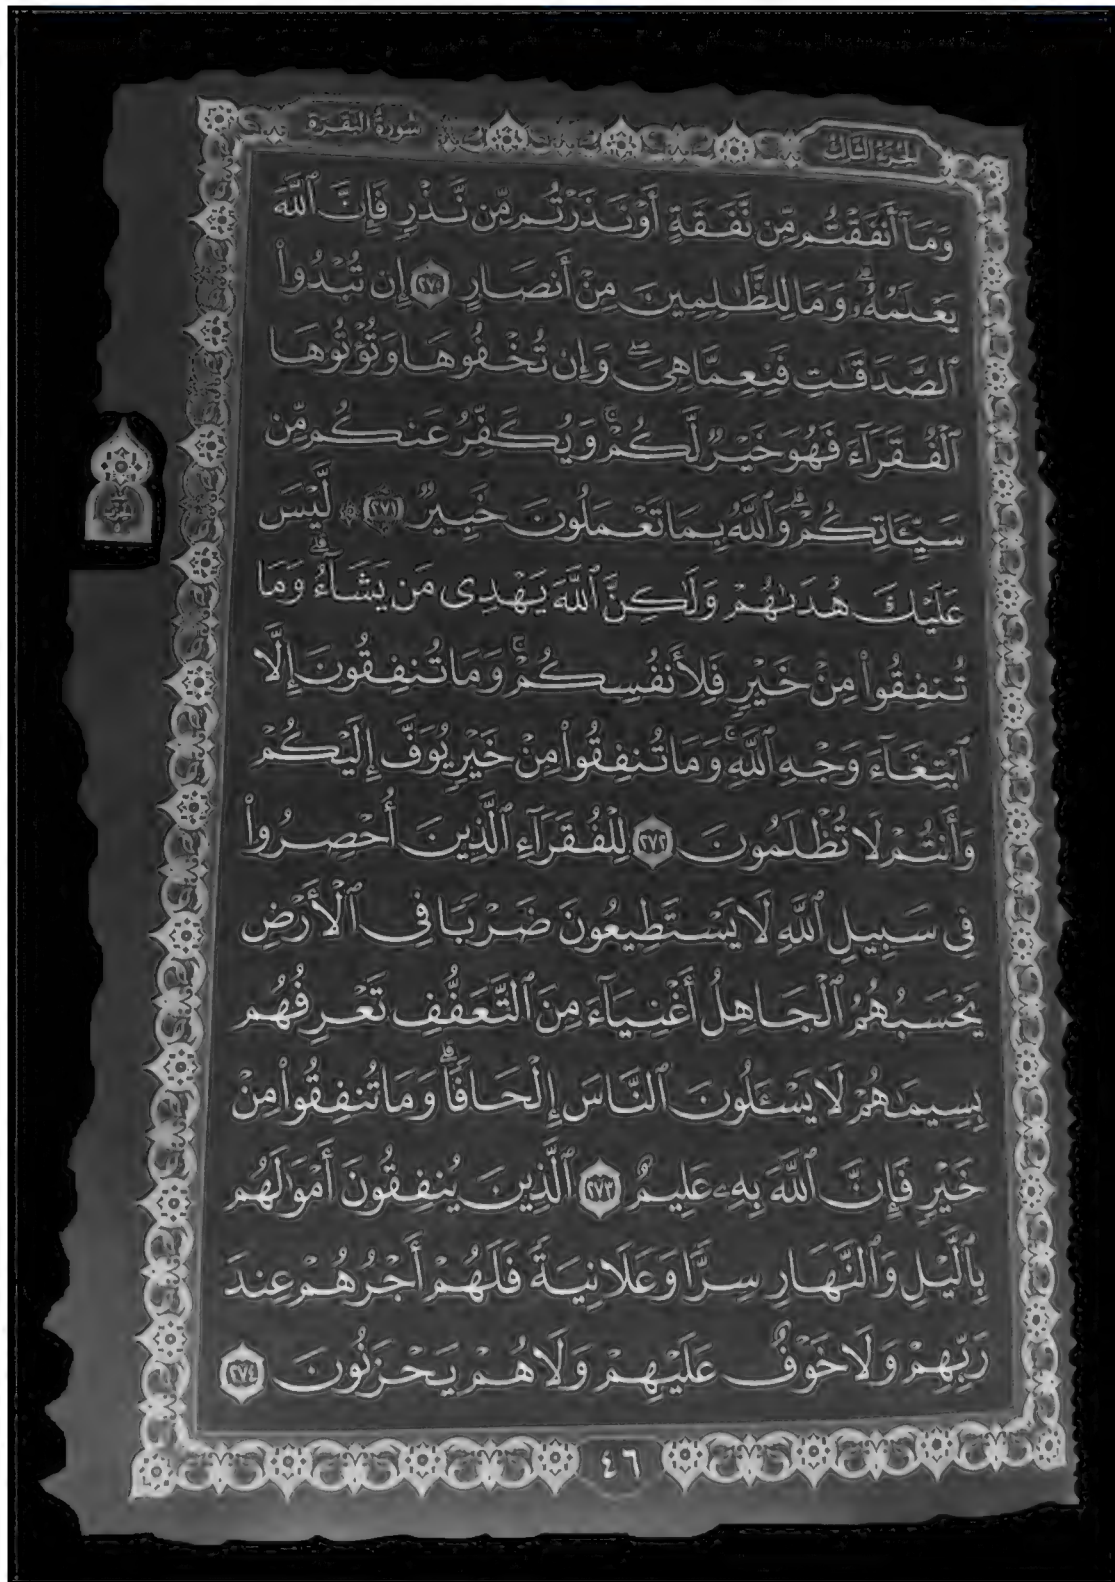 الجزء الثالث
سورة البقرة
وَمَآ أَنفَقْتُم مِّن نَّفَقَةٍ أَوْ نَذَرْتُم مِّن نَّذْرٍ فَإِنَّ ٱللَّهَ
يَعْلَمُهُۥۗ وَمَا لِلظَّٰلِمِينَ مِنْ أَنصَارٍ ٢٧٠ إِن تُبْدُوا۟
ٱلصَّدَقَٰتِ فَنِعِمَّا هِىَۖ وَإِن تُخْفُوهَا وَتُؤْتُوهَا
ٱلْفُقَرَآءَ فَهُوَ خَيْرٌ لَّكُمْۚ وَيُكَفِّرُ عَنكُم مِّن
سَيِّـَٔاتِكُمْۗ وَٱللَّهُ بِمَا تَعْمَلُونَ خَبِيرٌ ٢٧١ ۞ لَّيْسَ
عَلَيْكَ هُدَىٰهُمْ وَلَٰكِنَّ ٱللَّهَ يَهْدِى مَن يَشَآءُۗ وَمَا
تُنفِقُوا۟ مِنْ خَيْرٍ فَلِأَنفُسِكُمْۚ وَمَا تُنفِقُونَ إِلَّا
ٱبْتِغَآءَ وَجْهِ ٱللَّهِۚ وَمَا تُنفِقُوا۟ مِنْ خَيْرٍ يُوَفَّ إِلَيْكُمْ
وَأَنتُمْ لَا تُظْلَمُونَ ٢٧٢ لِلْفُقَرَآءِ ٱلَّذِينَ أُحْصِرُوا۟
فِى سَبِيلِ ٱللَّهِ لَا يَسْتَطِيعُونَ ضَرْبًا فِى ٱلْأَرْضِ
يَحْسَبُهُمُ ٱلْجَاهِلُ أَغْنِيَآءَ مِنَ ٱلتَّعَفُّفِ تَعْرِفُهُم
بِسِيمَٰهُمْ لَا يَسْـَٔلُونَ ٱلنَّاسَ إِلْحَافًاۗ وَمَا تُنفِقُوا۟ مِنْ
خَيْرٍ فَإِنَّ ٱللَّهَ بِهِۦ عَلِيمٌ ٢٧٣ ٱلَّذِينَ يُنفِقُونَ أَمْوَٰلَهُم
بِٱلَّيْلِ وَٱلنَّهَارِ سِرًّا وَعَلَانِيَةً فَلَهُمْ أَجْرُهُمْ عِندَ
رَبِّهِمْ وَلَا خَوْفٌ عَلَيْهِمْ وَلَا هُمْ يَحْزَنُونَ ٢٧٤
٤٦